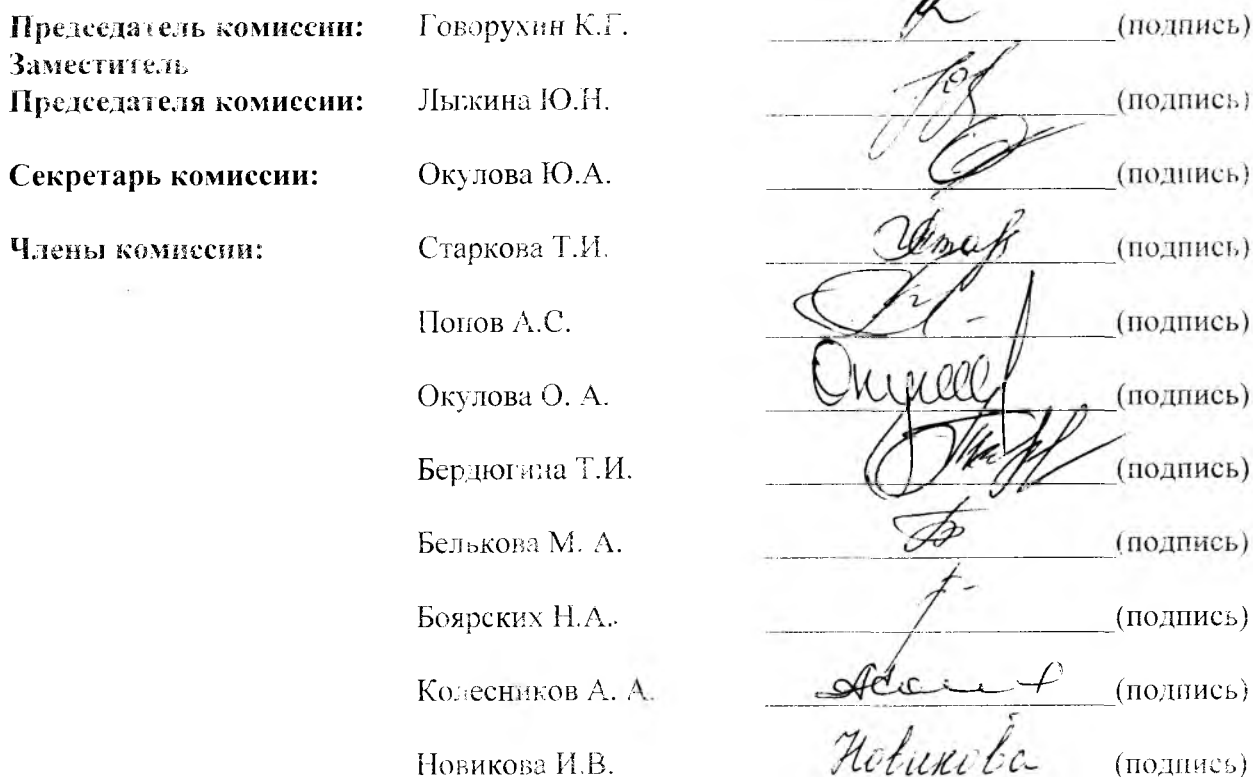 Председатель комиссии: Говорухин К.Г. (подпись)
Заместитель
Председателя комиссии: Лыжина Ю.Н. (подпись)
Секретарь комиссии: Окулова Ю.А. (подпись)
Члены комиссии: Старкова Т.И. (подпись)
Попов А.С. (подпись)
Окулова О. А. (подпись)
Бердюгина Т.И. (подпись)
Белькова М. А. (подпись)
Боярских Н.А. (подпись)
Колесников А. А. (подпись)
Новикова И.В. Новикова (подпись)